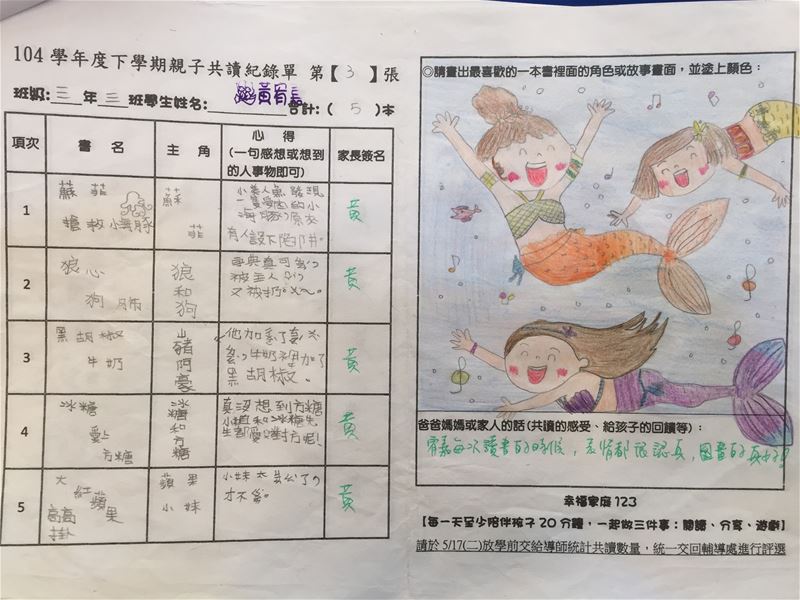 104 學年度下學期親子共讀紀錄單 第【 3 】張
班級:三年三班學生姓名: 合計:( 5 )本
項次 書 名 主 角 心 得 家長簽名
(一句感想或想到
的人事物即可)
1 蘇 菲 蘇 菲 黃
小美人魚發現
一隻受困的小
有人設下陷阱。
2 狼心 狗肺 狼和狗 黃
被主人
又被
3 黑胡椒 牛奶 山豬阿豪 黃
牛奶裡加了
黑胡椒。
4 冰糖 愛上 方糖 冰糖和方糖 黃
真沒想到方糖
小姐和冰糖先
生都愛對方呢!
5 大紅蘋果 高高掛 蘋果 小妹 黃
小妹太
◎請畫出最喜歡的一本書裡面的角色或故事畫面,並塗上顏色:
爸爸媽媽或家人的話(共讀的感受、給孩子的回饋等):
宥嘉每次讀書的時候,表情都很認真,圖畫的真好!
幸福家庭 123
【每一天至少陪伴孩子 20 分鐘,一起做三件事:閱讀、分享、遊戲】
請於 5/17(二)放學前交給導師統計共讀數量,統一交回輔導處進行評選